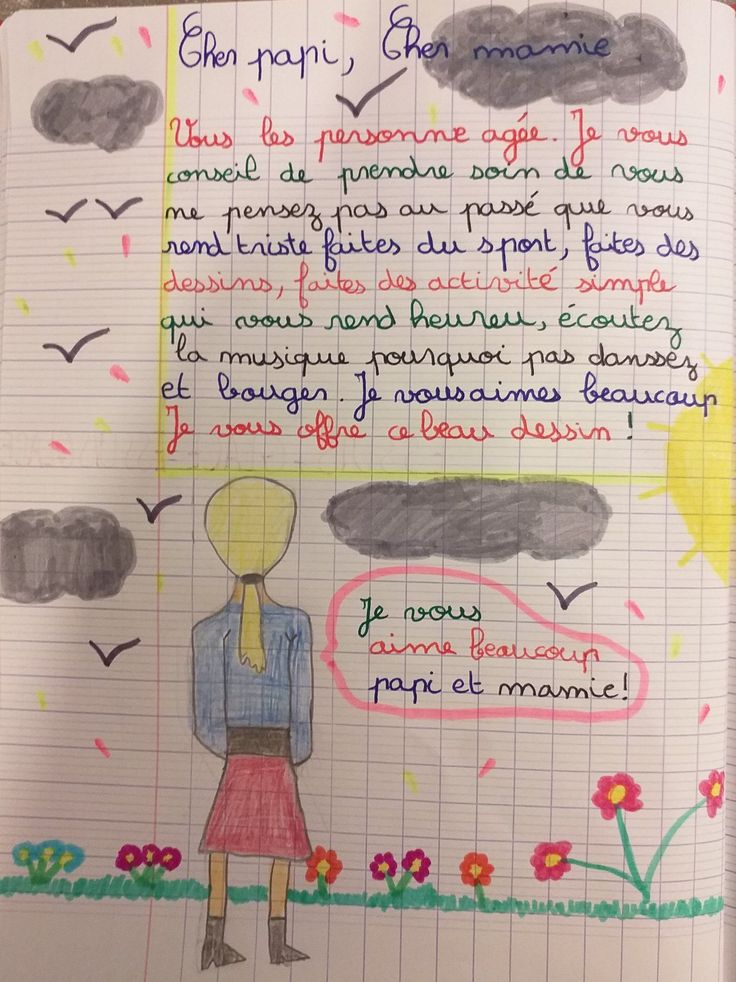 Cher papi, Cher mamie
Vous les personne agée. Je vous
conseil de prendre soin de vous
ne pensez pas au passé que vous
rend triste faites du sport, faites des
dessins, faites des activité simple
qui vous rend heureu, écoutez
la musique pourquoi pas danssez
et bouger. Je vous aimes beaucoup
Je vous offre ce beau dessin !
Je vous
aime beaucoup
papi et mamie!